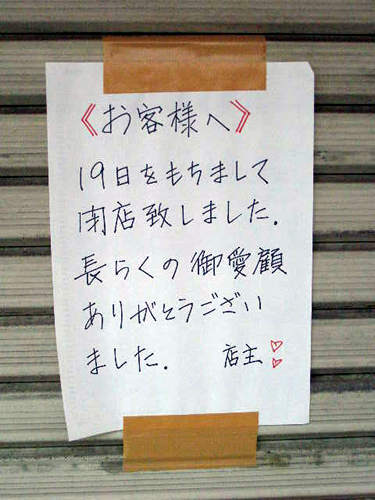 《お客様へ》
19日をもちまして
閉店致しました.
長らくの御愛顧
ありがとうござい
ました. 店主